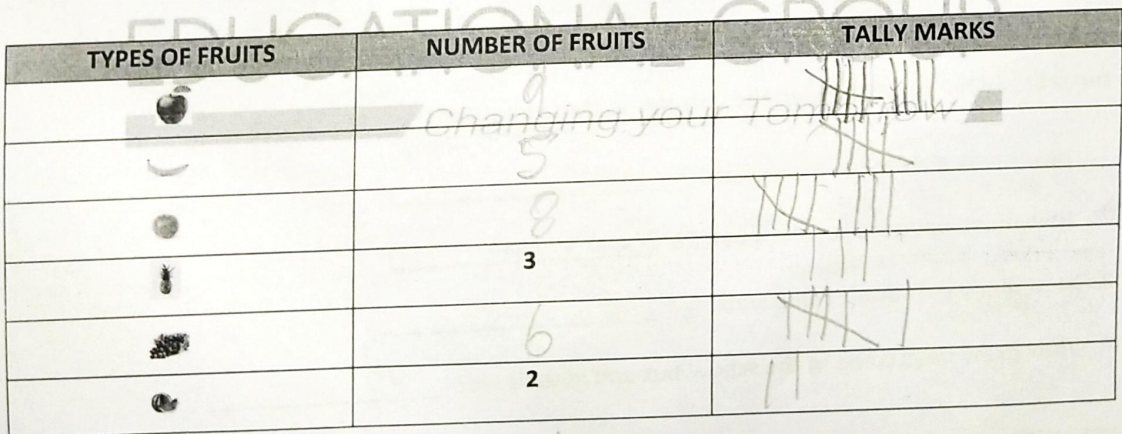 EDUCATIONAL GROUP
Changing your Tomorrow
TYPES OF FRUITS NUMBER OF FRUITS TALLY MARKS
9
5
8
3
6
2